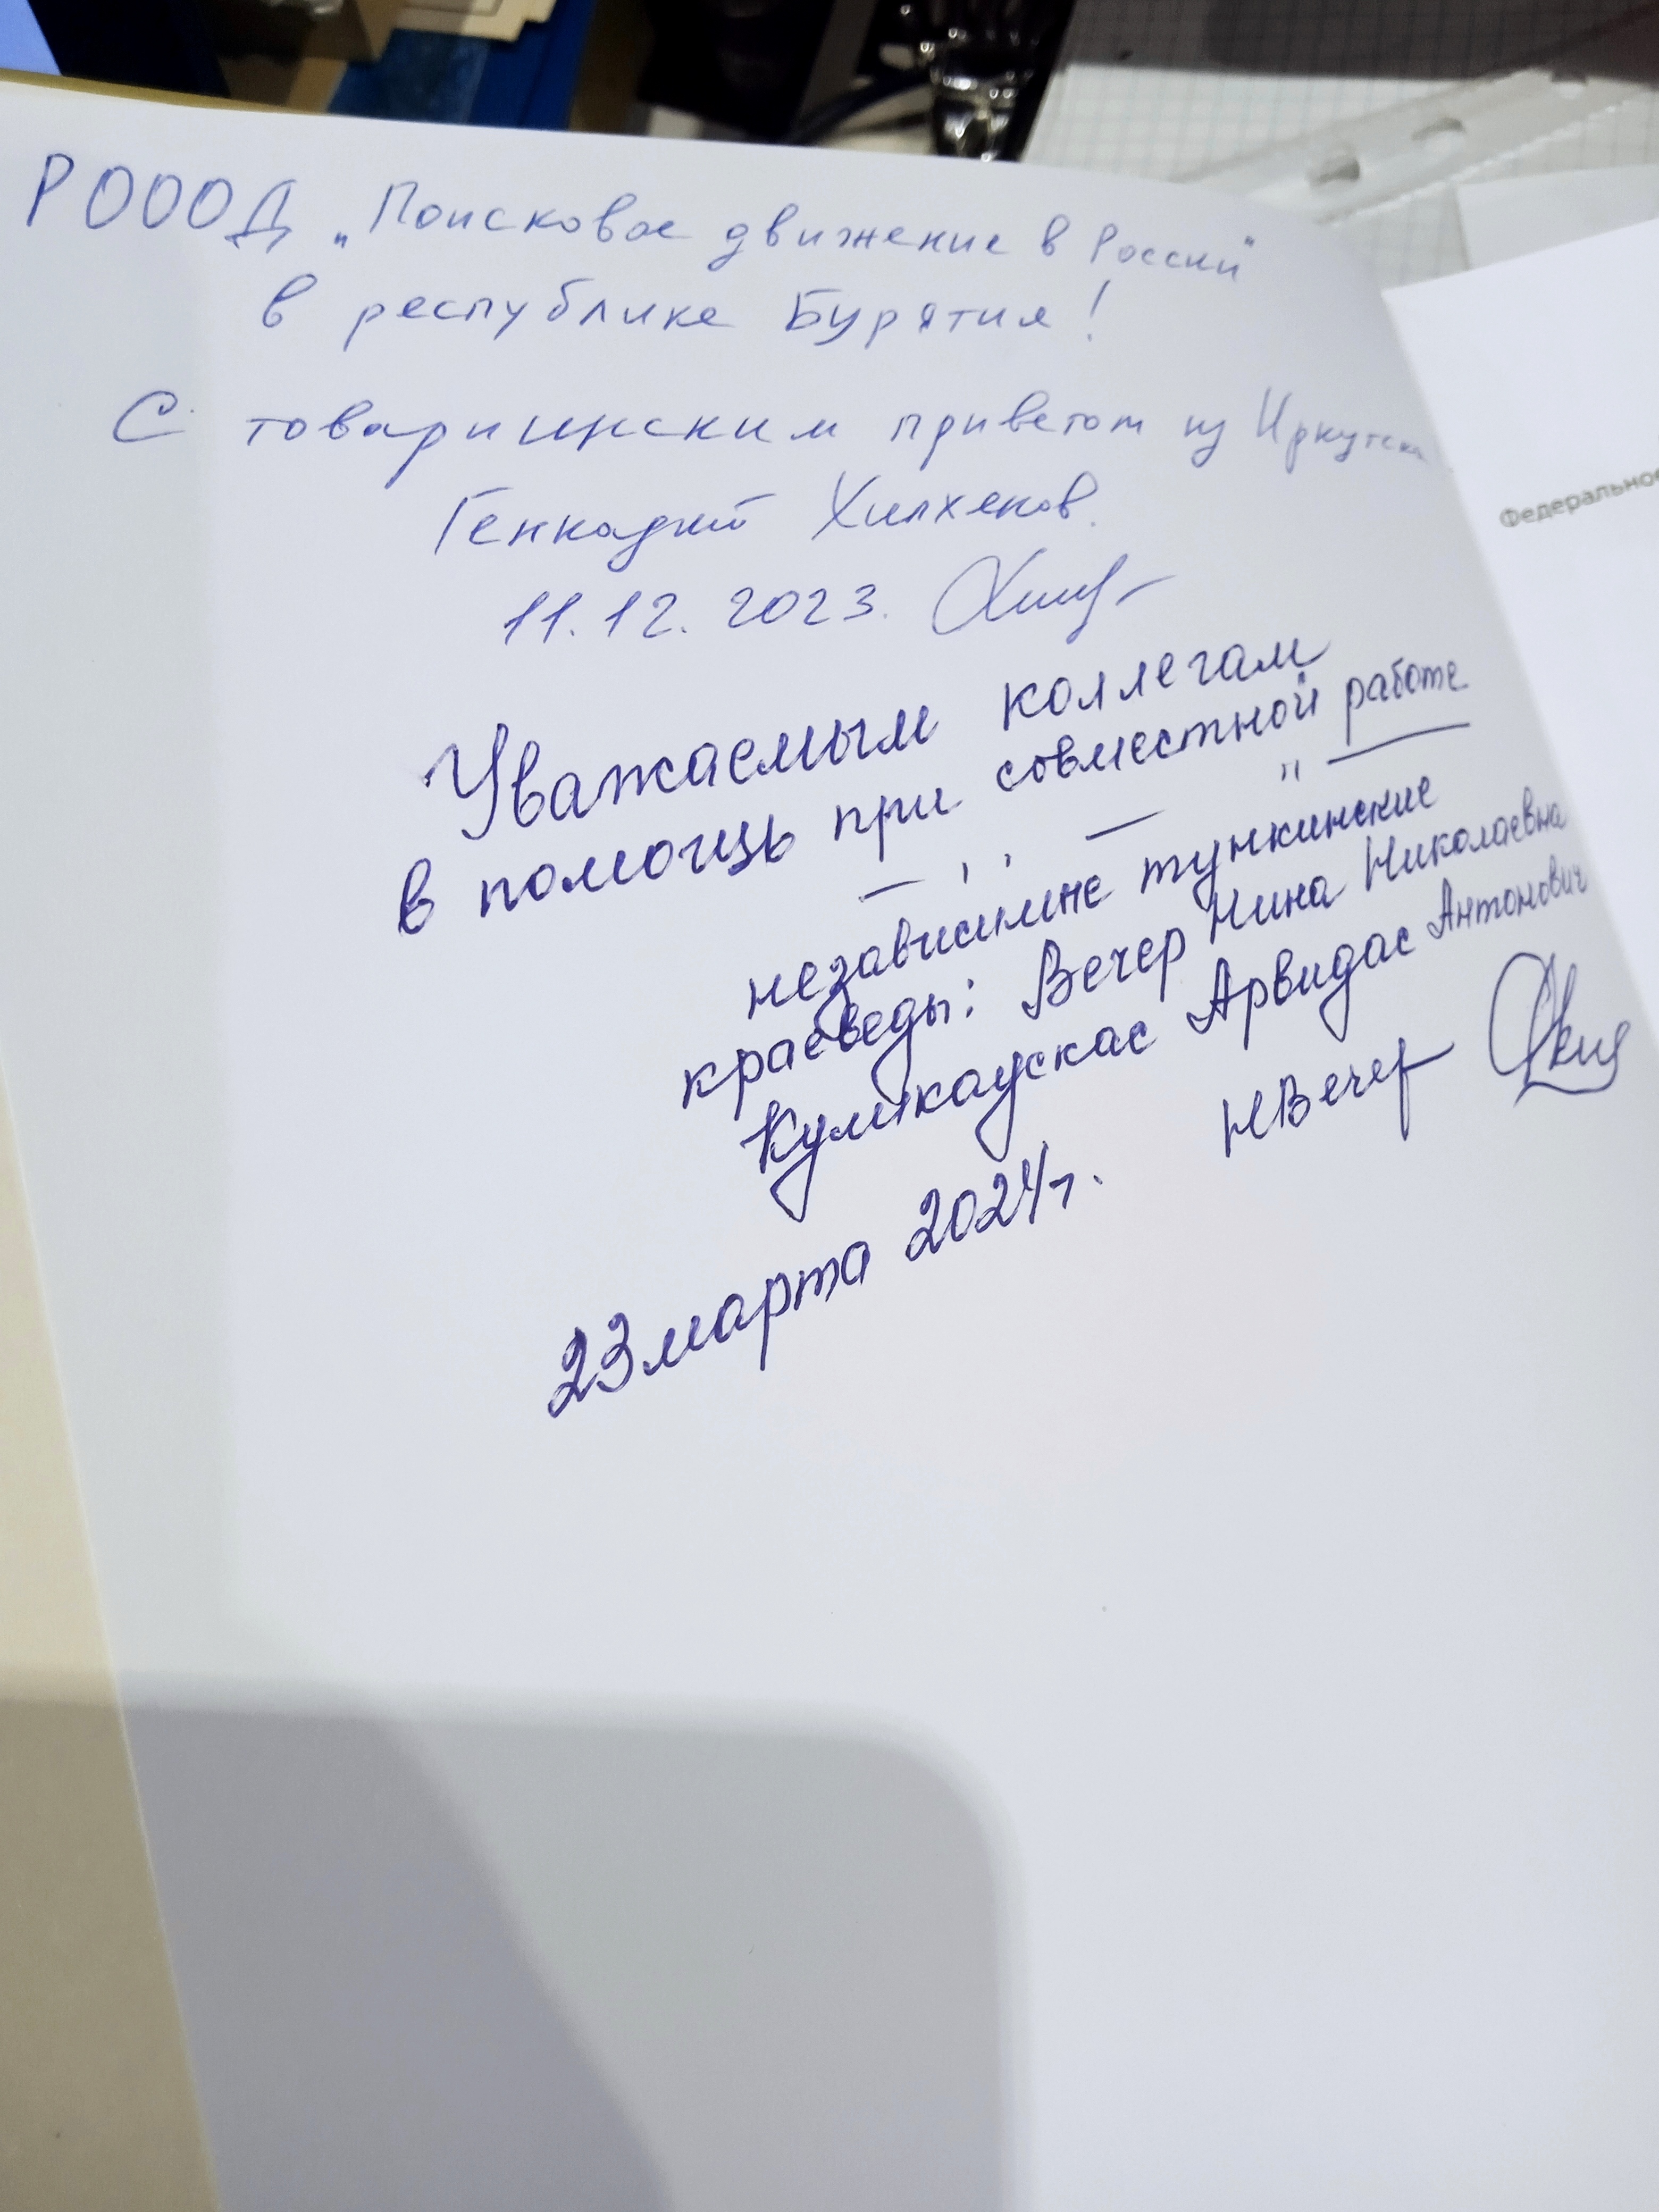 РОООД „Поисковое движение в России"
в республике Бурятия!
С товарищеским приветом из Иркутска.
Геннадий Хилханов.
11.12.2023.
Уважаемым коллегам
в помощь при совместной работе
— ,, — " —
независимые тункинские
краеведы: Вечер Нина Николаевна
Кумкаускас Арвидас Антонович
НВечер
23 марта 2024г.
Федеральное